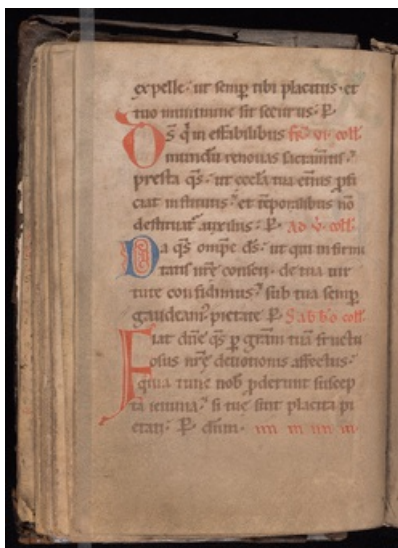 expelle · ut semp tibi placitus · et
tuo munimine sit securus · P.
Ds q̄ in effabilibus fr̄. vi. coll.
mundū renouas sacramtis ·
presta q̄s · ut eccla tua et̄nis pfi
ciat institutis · et temporalibus nō
destituat auxiliis · P. Ad v. coll.
Da q̄s omps ds · ut qui infirmi
tatis nr̄e conscii · de tua uir
tute confidimus · sub tua semp
gaudeam pietate P. Sabb̄o coll.
Fiat dn̄e q̄s p gr̄am tuā fructu
osus nr̄e deuotionis affectus ·
quia tunc nob pderunt suscep
ta ieiunia · si tue sint placita pi
etati · P. dn̄m ·